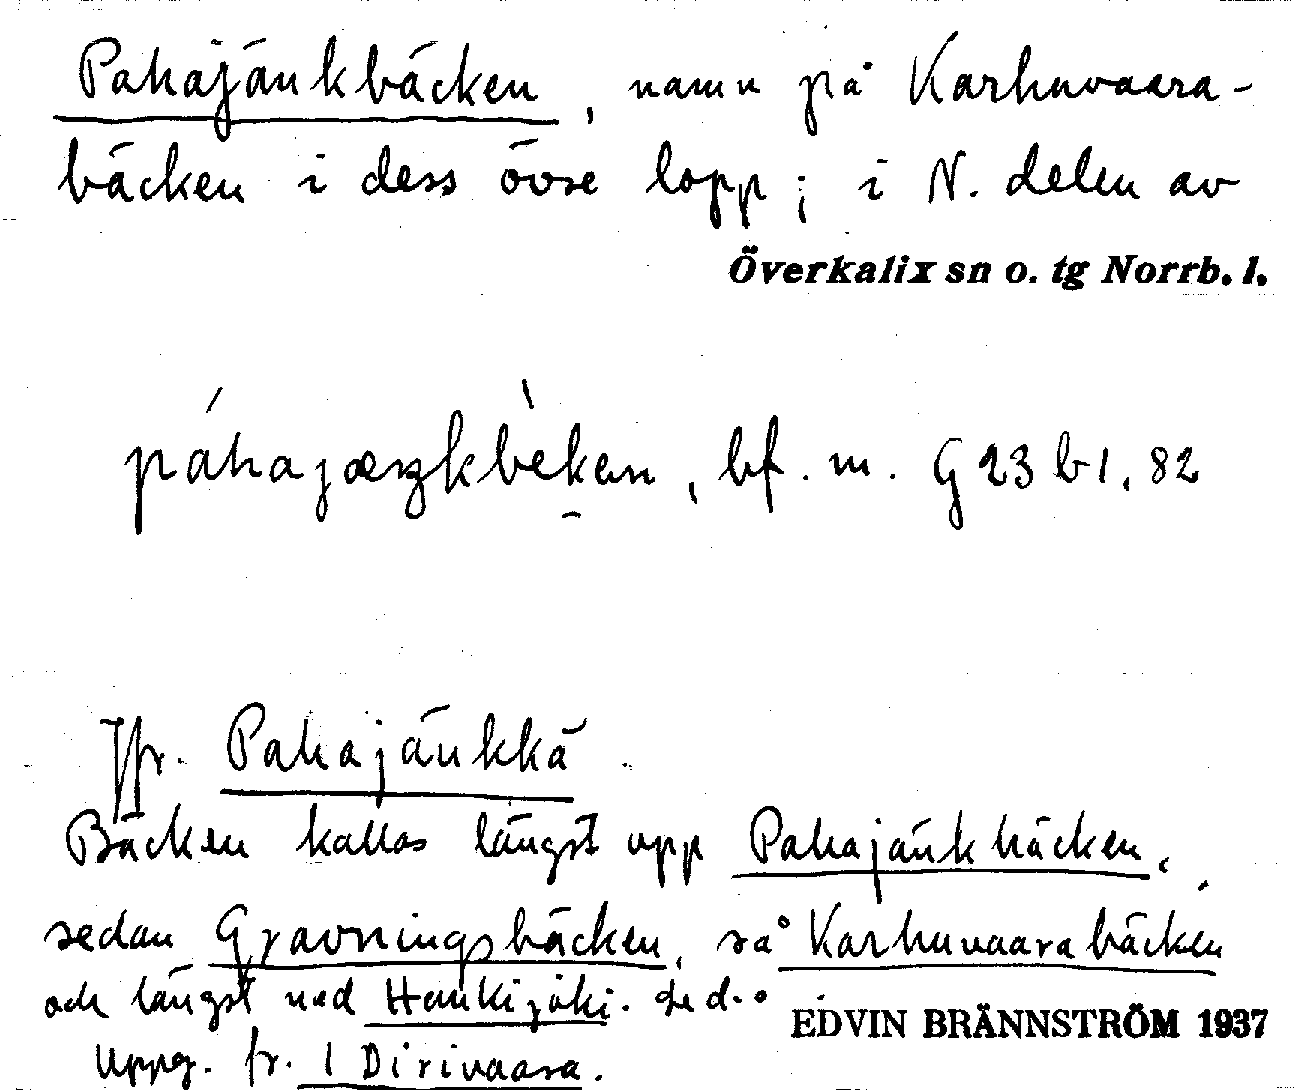 Pahajänkbäcken, namn på Karhuvaara-
bäcken i dess övre lopp; i N. delen av
Överkalix sn o. tg Norrb. l.
páhajæŋkbèkən, bf. m. G 23 b1, 82
Jfr. Pahajänkkä.
Bäcken kallas längst upp Pahajänkbäcken,
sedan Gravningsbäcken, så Karhuvaarabäcken
och längst ned Hankijoki. Se d. o.
EDVIN BRÄNNSTRÖM 1937
Uppg. fr. 1 Dirivaara.